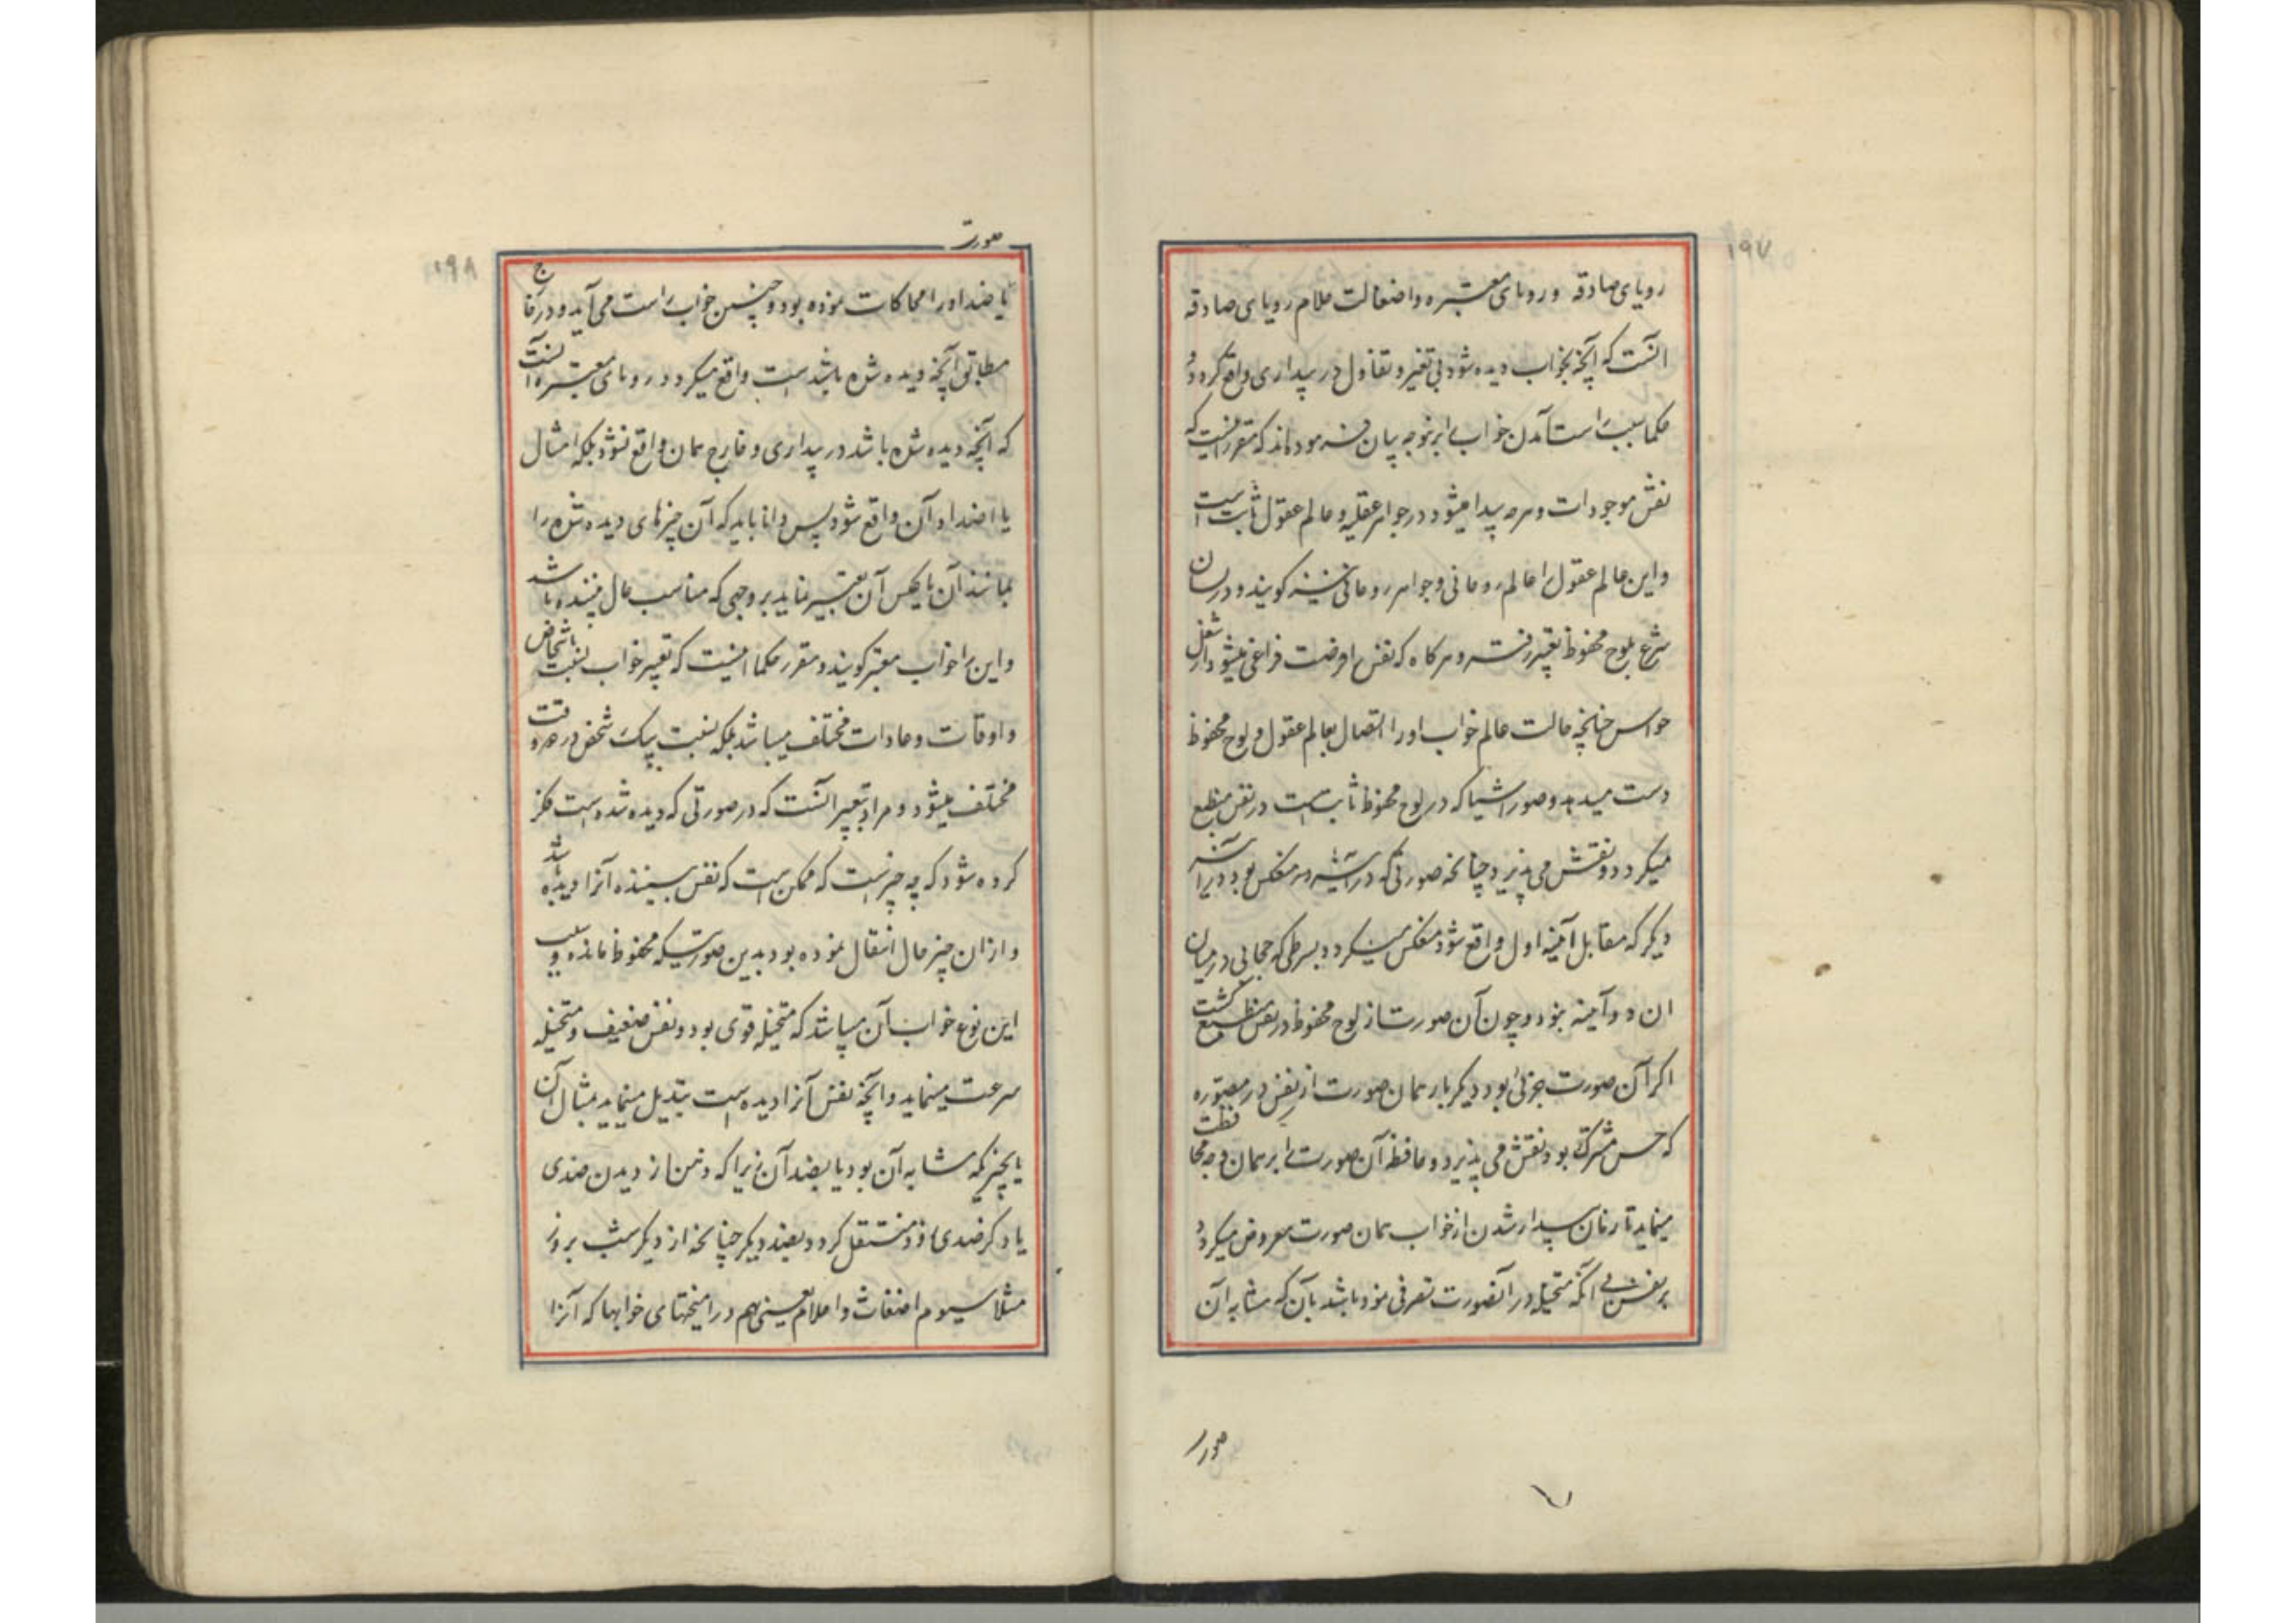 ۱۹۷
رویای صادقه و رویای معتبره و اضغاث احلام رویای صادقه
آنست که آنچه بخواب دیده شود بی تغیر و تفاوت در بیداری واقع کردد و
حکما سبب راست آمدن خواب را برینوجه بیان فرموده اند که مقرر اینست که
نقش موجودات و هرچه پیدا میشود در جواهر عقلیه و عالم عقول ثابت است
و این عالم عقول را عالم روحانی و جواهر روحانی نیز کویند و در لسان
شرع بلوح محفوظ تعبیر رفته و هرکاه که نفس را فرصت فراغی میشود از شغل
حواس چنانچه حالت عالم خواب او را اتصال بعالم عقول و لوح محفوظ
دست میدهد و صور اشیا که در لوح محفوظ ثابت است در نفس منطبع
میکردد و نقش می پذیرد چنانچه صورتی که در آینه منعکس بود در آینه
دیکر که مقابل آئینه اول واقع شود منعکس میکردد بشرطی که حجابی در میان
ان دو آینه نبود و چون آن صورت از لوح محفوظ در نفس منطبع کشت
اکر آن صورت جزئی بود دیکر بار همان صورت از نفس در مصوره
که حس مشترک بود نقش می پذیرد و حافظه آن صورت را بر همان وجه محافظت
مینماید تا زمان بیدار شدن از خواب همان صورت معروض میکردد
بر نفس بی آنکه متخیله در آنصورت تصرفی نموده باشد بآن که مشابه آن
صورت
۱۹۸
صورت
یا ضد او را محاکات نموده بود و چنین خواب راست می آید و در خارج
مطابق آنچه دیده شده باشد است واقع میکردد و رویای معتبره آنست
که آنچه دیده شده باشد در بیداری و خارج همان واقع نشود بلکه امثال
یا اضداد آن واقع شود پس دانا باید که آن چیزهای دیده شده را
بمانند آن یا بعکس آن تعبیر نماید بر وجهی که مناسب حال بیننده باشد
و این را خواب معتبر کویند و مقرر حکما اینست که تعبیر خواب بنسبت باشخاص
و اوقات و عادات مختلف میباشد بلکه بنسبت بیک شخص در دو وقت
مختلف میشود و مراد بتعبیر آنست که در صورتی که دیده شده است فکر
کرده شود که چه چیز است که ممکن است که نفس بیننده آنرا دیده باشد
و از ان چیز حال انتقال نموده بود بدین صورتیکه محفوظ مانده و سبب
این نوع خواب آن میباشد که متخیله قوی بود و نفس ضعیف و متخیله
سرعت مینماید و آنچه نفس آنرا دیده است تبدیل مینماید بمثال آن
یا بچیزیکه مشابه آن بود یا بضد آن زیرا که ذهن از دیدن ضدی
یا ذکر ضدی زود منتقل کردد بضد دیکر چنانچه از ذکر شب بروز
مثلا سیوم اضغاث و احلام یعنی هم در آمیختهای خوابها که آنرا